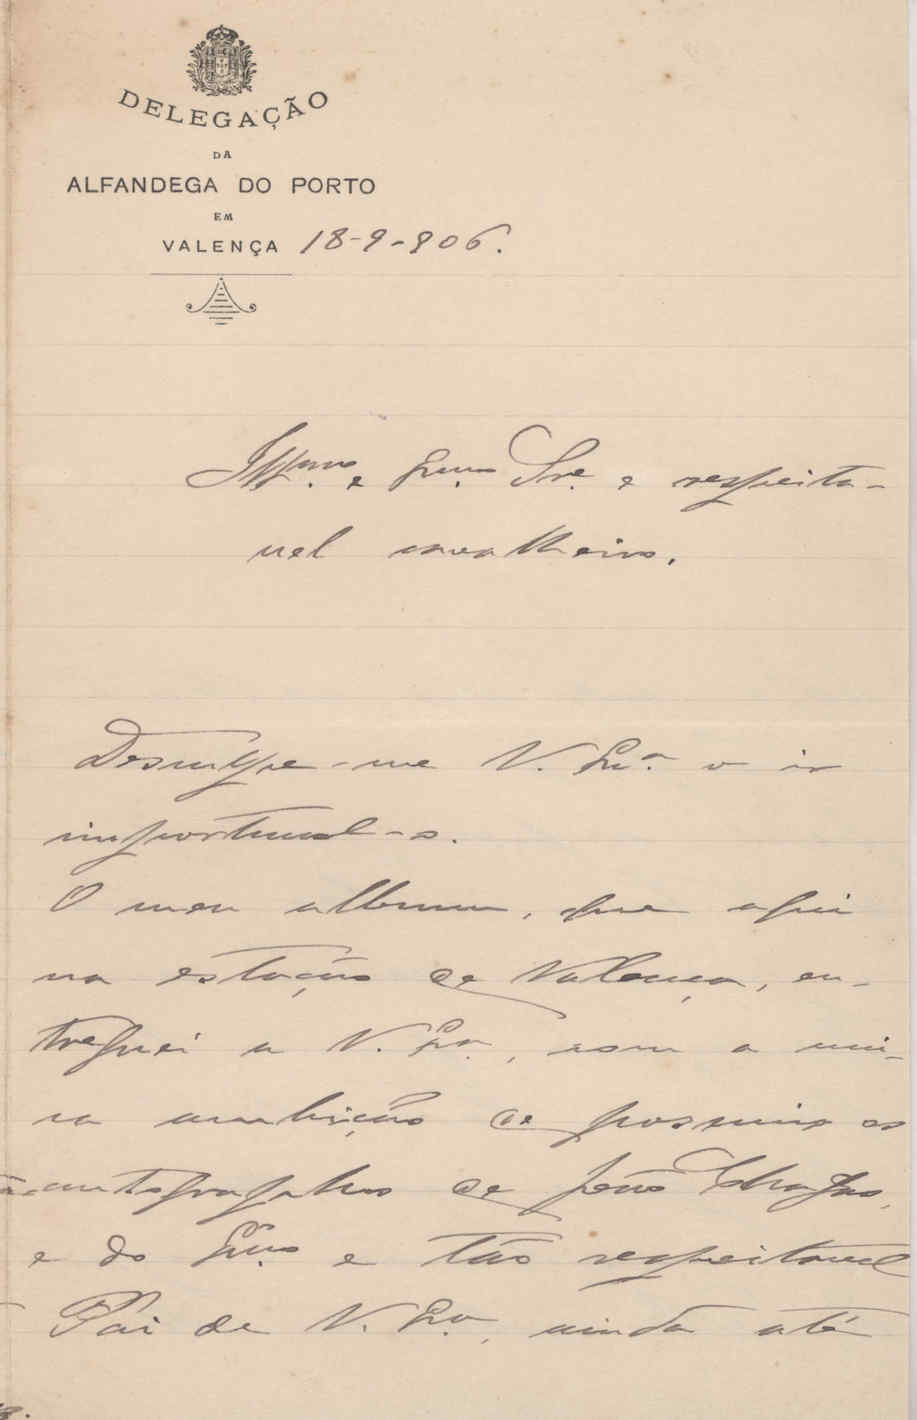 DELEGAÇÃO
DA
ALFANDEGA DO PORTO
EM
VALENÇA 18-9-906.
Illmo. e Exmo. Snr. e respeita-
vel cavalheiro.
Desculpe-me V. Exa. o ir
importunal-o.
O meu album, que aqui
na estação de Valença, en-
treguei a V. Exa., com a uni-
ca ambição de possuir os
autographos de João Chagas,
e do Exmo. e tão respeitavel
Pai de V. Exa., ainda até